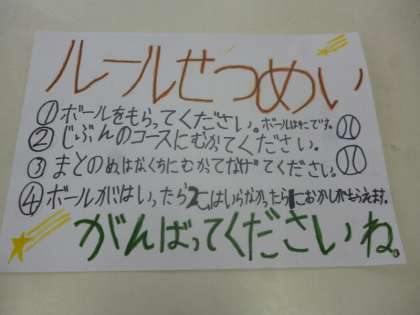 ルールせつめい
①ボールをもらってください。ボールは4こです。
②じぶんのコースにむかってください。
③まとのめはなくちにむかってなげてください。
④ボールがはいったら2こはいらなかったら1こおかしがもらえます。
がんばってくださいね。